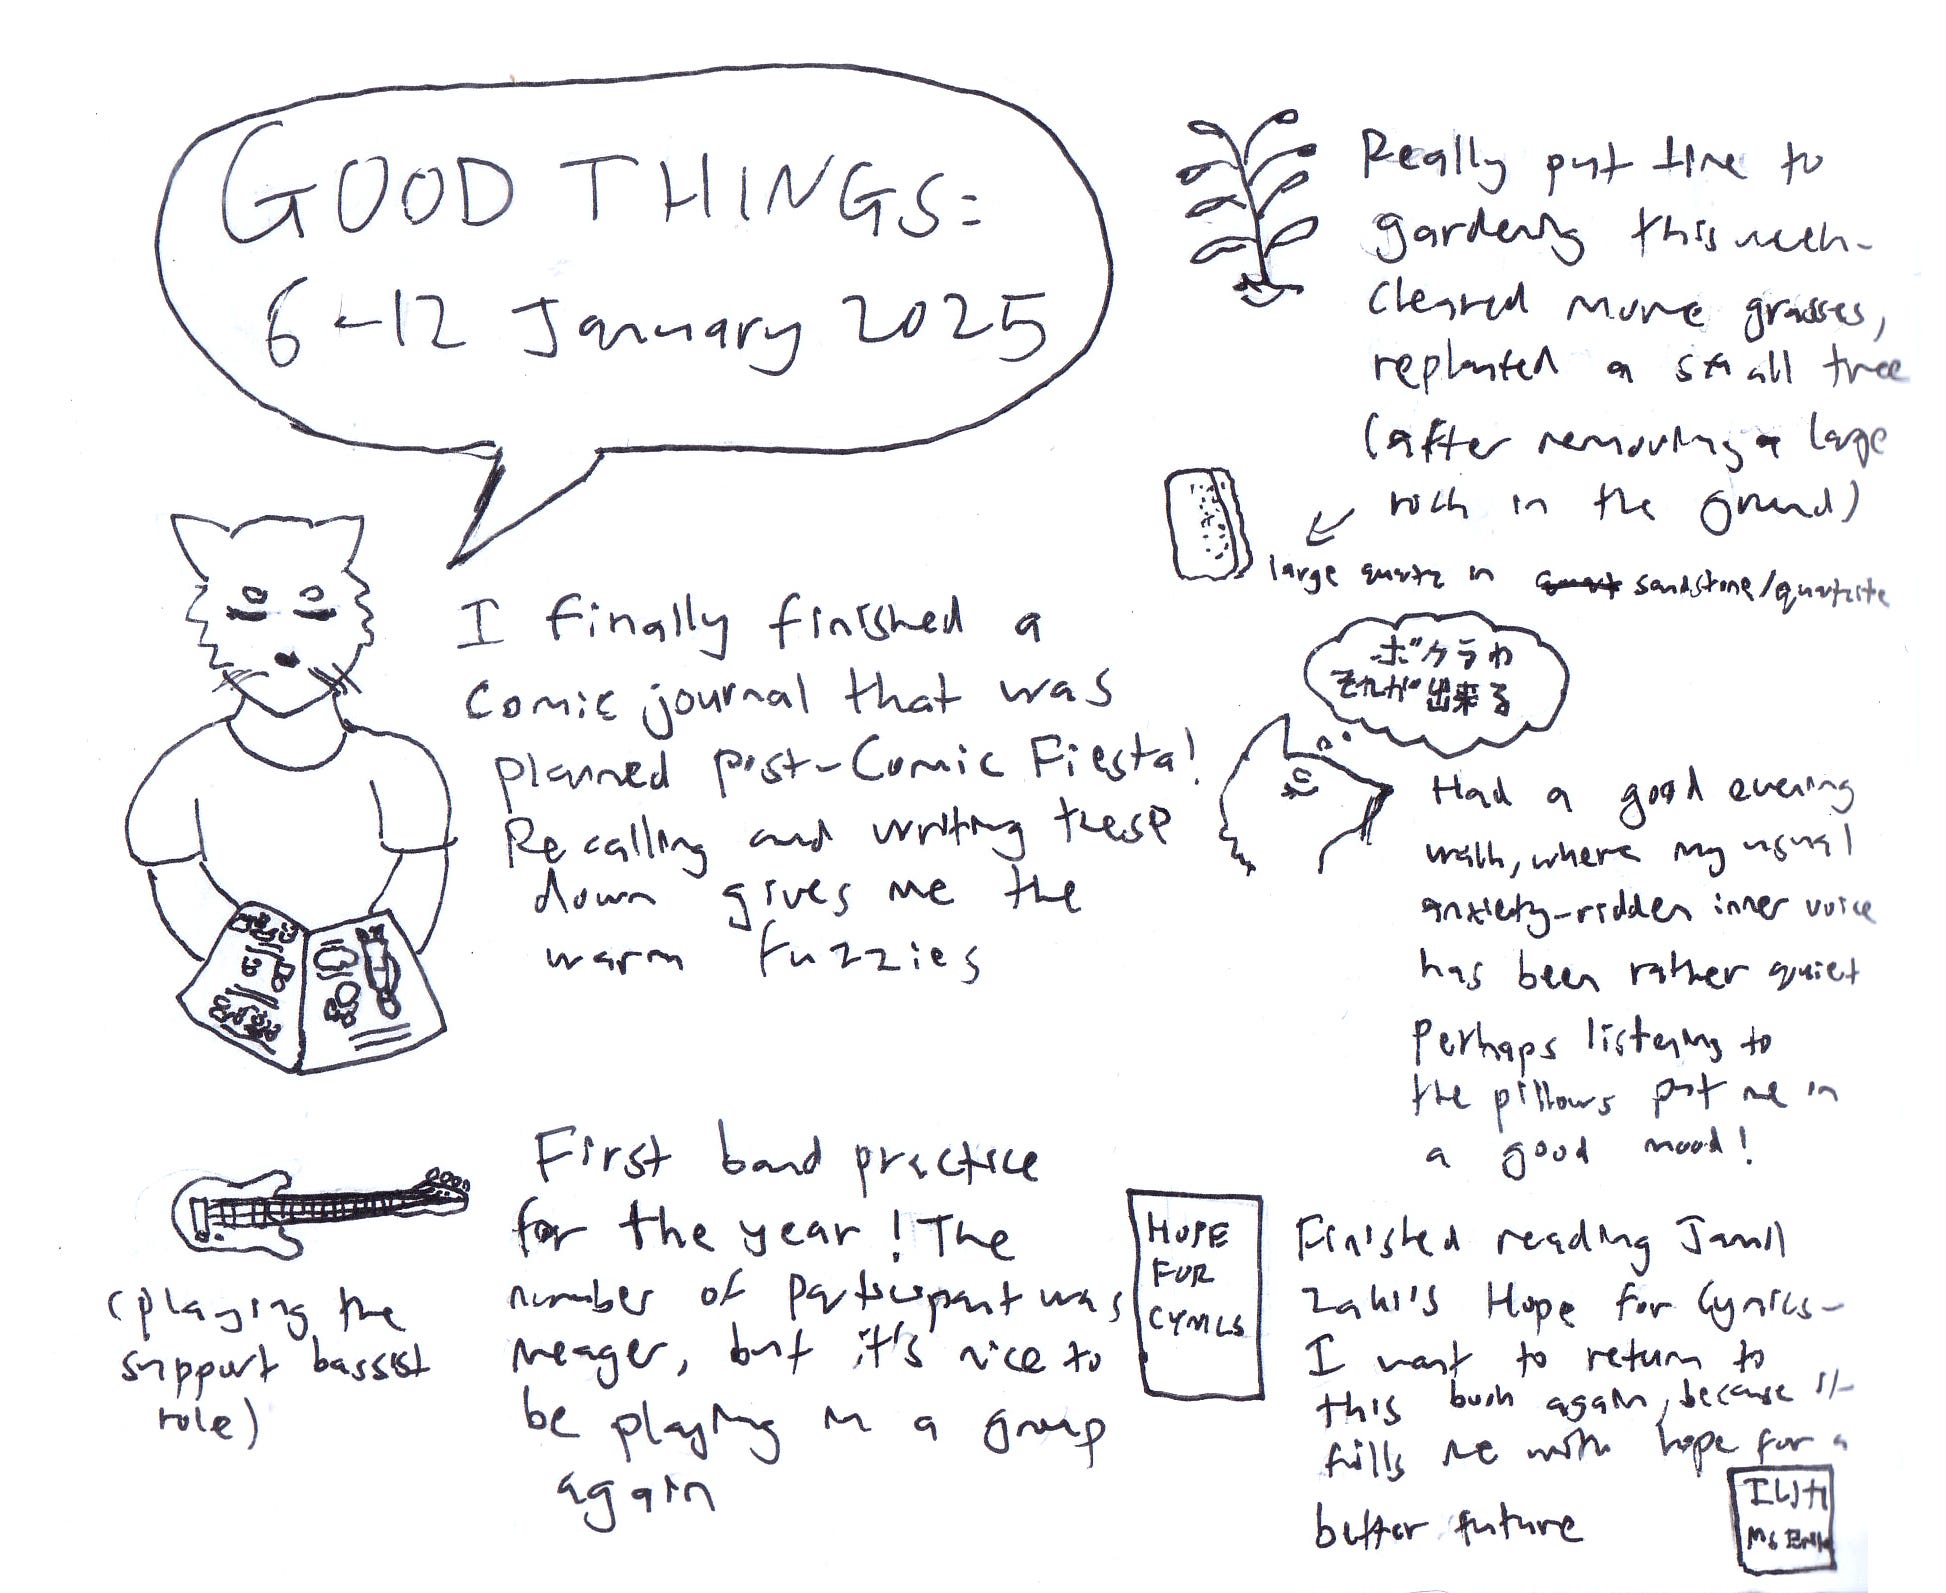 GOOD THINGS:
6-12 January 2025
I finally finished a
comic journal that was
planned post-Comic Fiesta!
Recalling and writing these
down gives me the
warm fuzzies
First band practice
for the year! The
number of participant was
meager, but it's nice to
be playing in a group
again
(playing the
support bassist
role)
Really put time to
gardening this week-
cleared more grasses,
replanted a small tree
(after removing a large
rock in the ground)
large quartz in sandstone/quartzite
ボクラわ
それが出来る
Had a good evening
walk, where my usual
anxiety-ridden inner voice
has been rather quiet
Perhaps listening to
the pillows put me in
a good mood!
HOPE
FOR
CYNICS
Finished reading Jamil
Zaki's Hope for Cynics-
I want to return to
this book again, because it
fills me with hope for a
better future
Ms